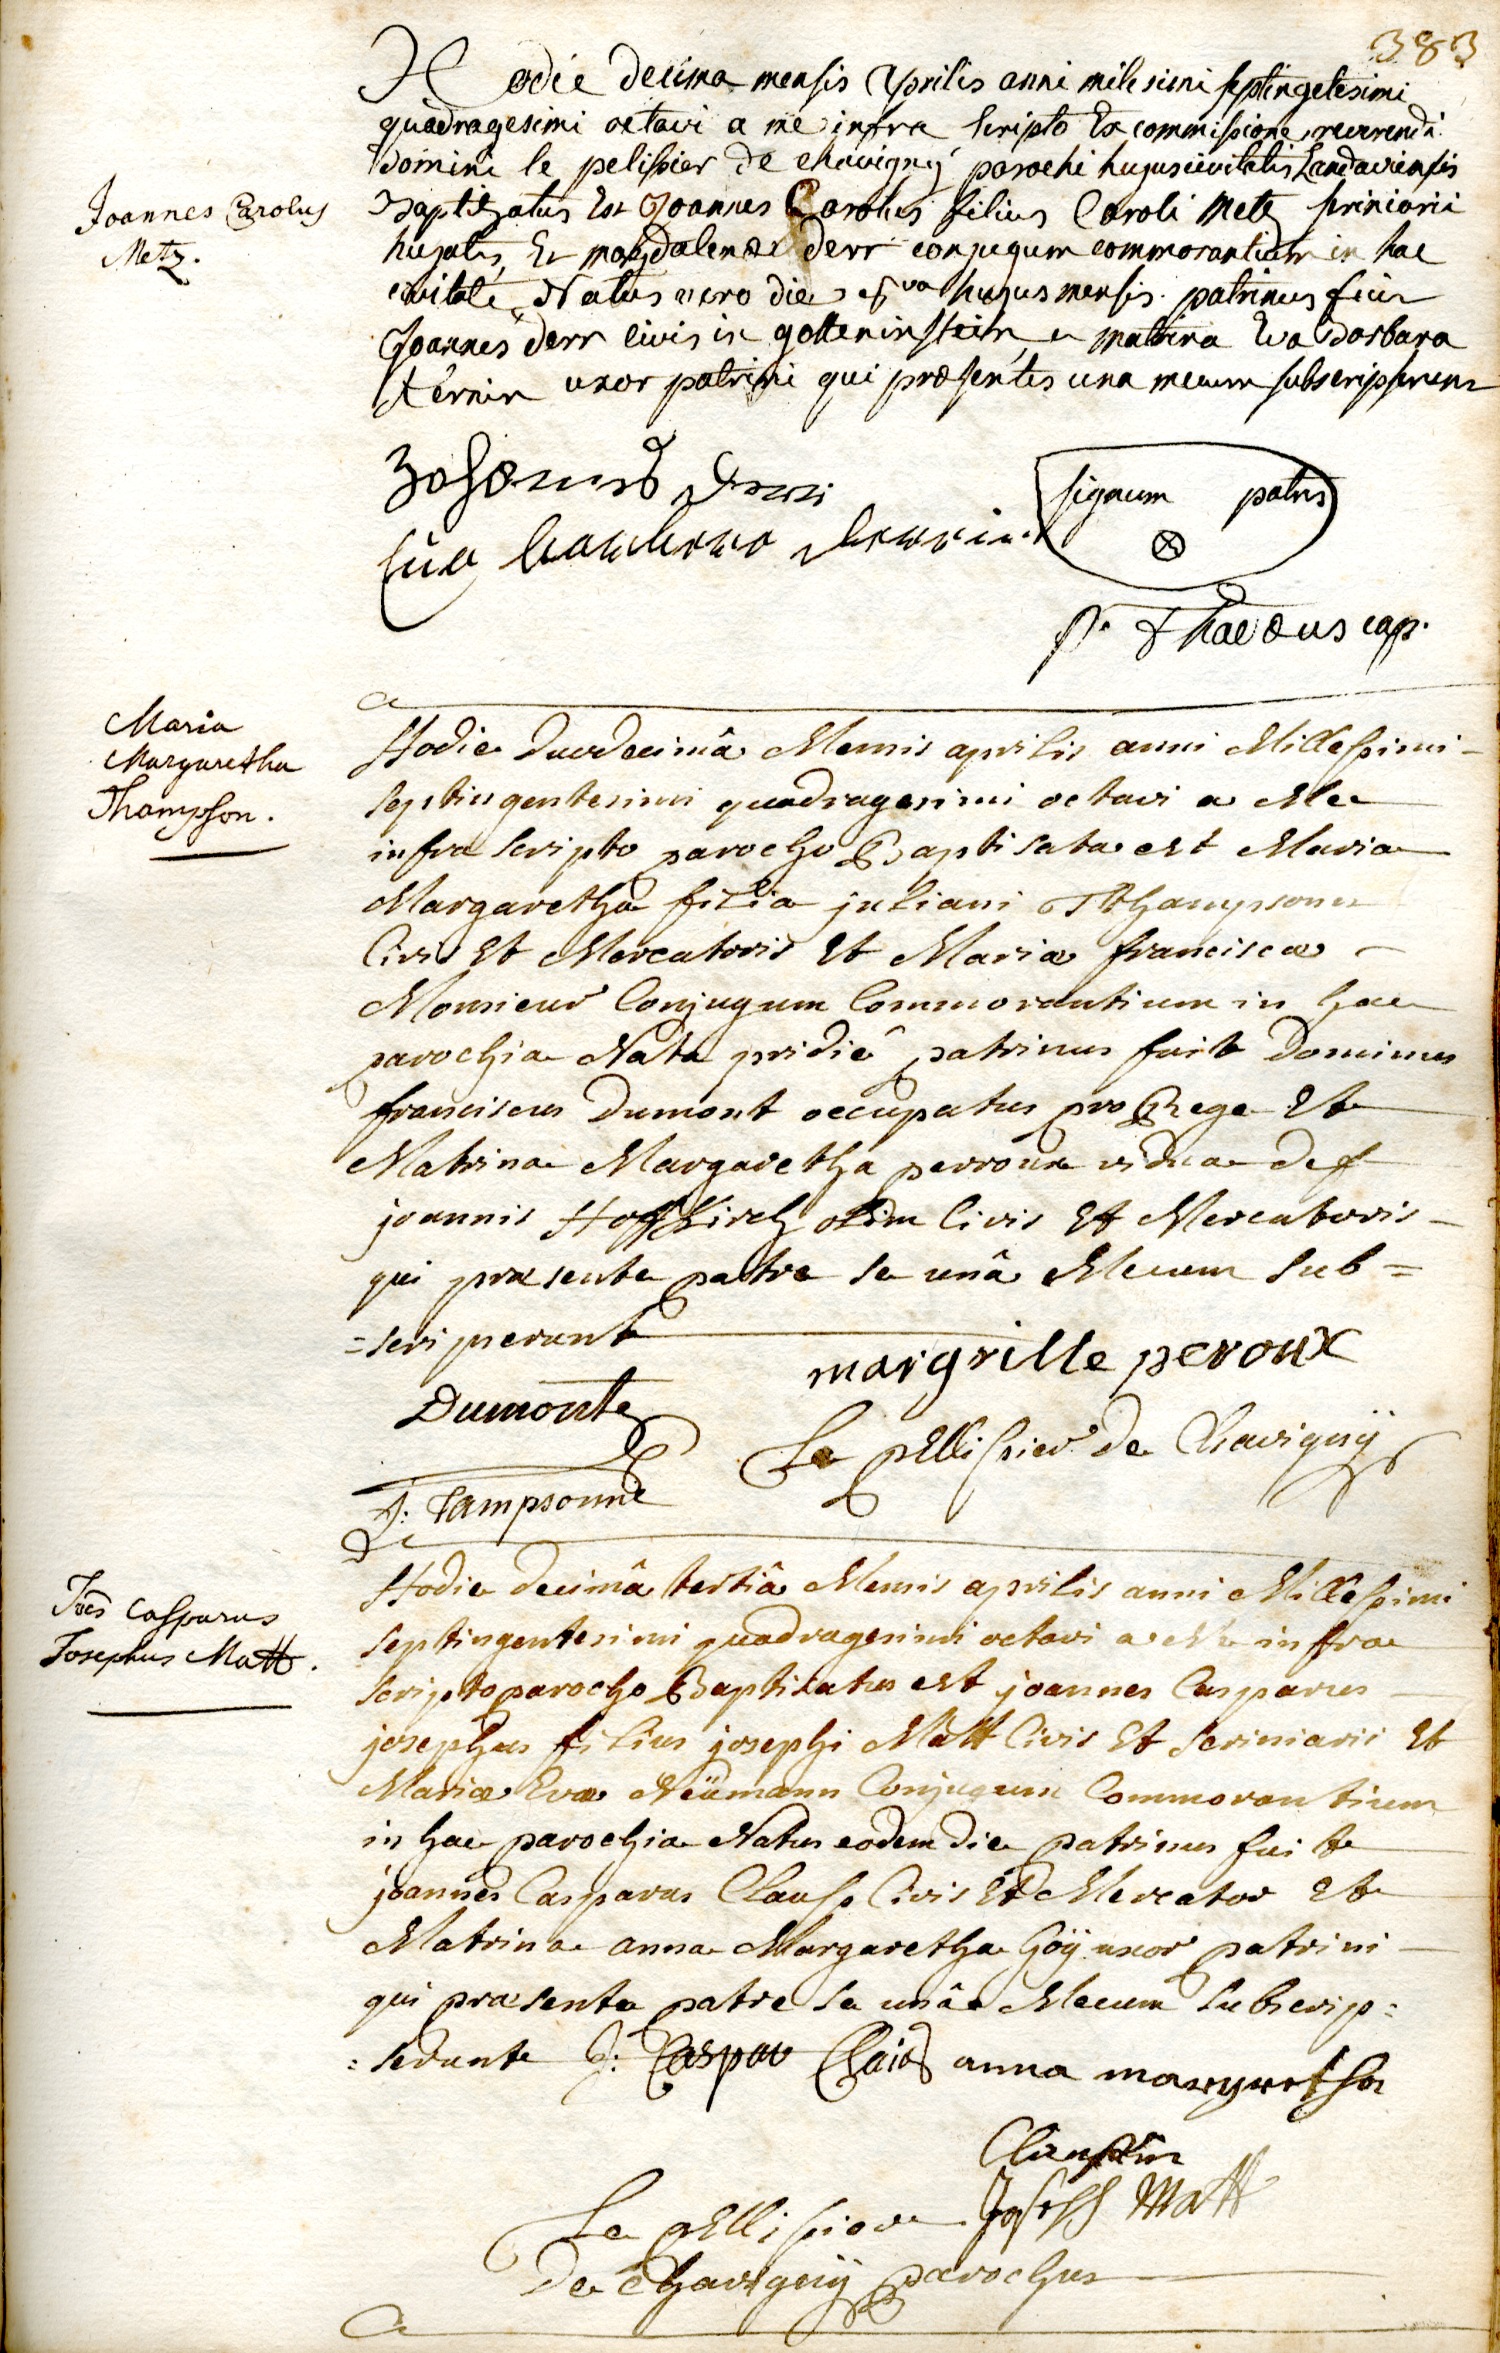 383
Joannes Carolus
Metz.
Hodie decima mensis Aprilis anni milesimi septingetesimi
quadragesimi octavi a me infra scripto Ex commissione reverendi
Domini le pelissier de chavigny parochi hujus civitatis Landaviensis
Baptizatus Est Joannes Carolus filius Caroli Metz scriniarii
hujatis, Et magdalenæ derr conjugum commorantium in hac
civitate, Natus vero die 9va hujus mensis. patrinus fuit
Joannes derr civis in gotteninstein, et matrina Eva Barbara
uxor patrini qui præsentes una mecum subscripserunt
Johannes Derr
Eva barbara derrin
signum patris
p. Thadæus cap.
Maria
Margaretha
Thampson.
Hodie duodecimâ Mensis aprilis anni Millessimi
septingentesimi quadragesimi octavi a Me
infra scripto parocho Baptisata est Maria
Margaretha filia juliani Thampsonn
Civis Et Mercatoris Et Mariæ franciscæ
Monsieur Conjugum Commorantium in hac
parochia Nata pridiê patrinus fuit Dominus
franciscus Dumont occupatus pro Rege Et
Matrina Margaretha perroux vidua def
joannis Hoffkirch olim Civis Et Mercatoris
qui præsente patre se unâ Mecum sub=
=scripserunt
margrille peroux
Dumonte
Le pellissier de Chavignÿ
J: Tampsonne
Joês Casparus
Josephus Matt.
Hodie decimâ tertiâ Mensis aprilis anni Millessimi
septingentesimi quadragesimi octavi a Me infra
scripto parocho Baptisatus est joannes Casparus
josephus filius josephi Matt Civis Et scriniarii Et
Mariæ Evæ Neümann Conjugum Commorantium
in hac parochia Natus eodem die patrinus fuit
joannes Casparus Clauss Civis Et Mercator Et
Matrina anna Margaretha Göÿ uxor patrini
qui præsente patre se unâ Mecum subscrip=
=serunt J: Caspar Claus anna margretha
Claussin
Le pellissier Joseph Matt
de Chavignÿ parochus